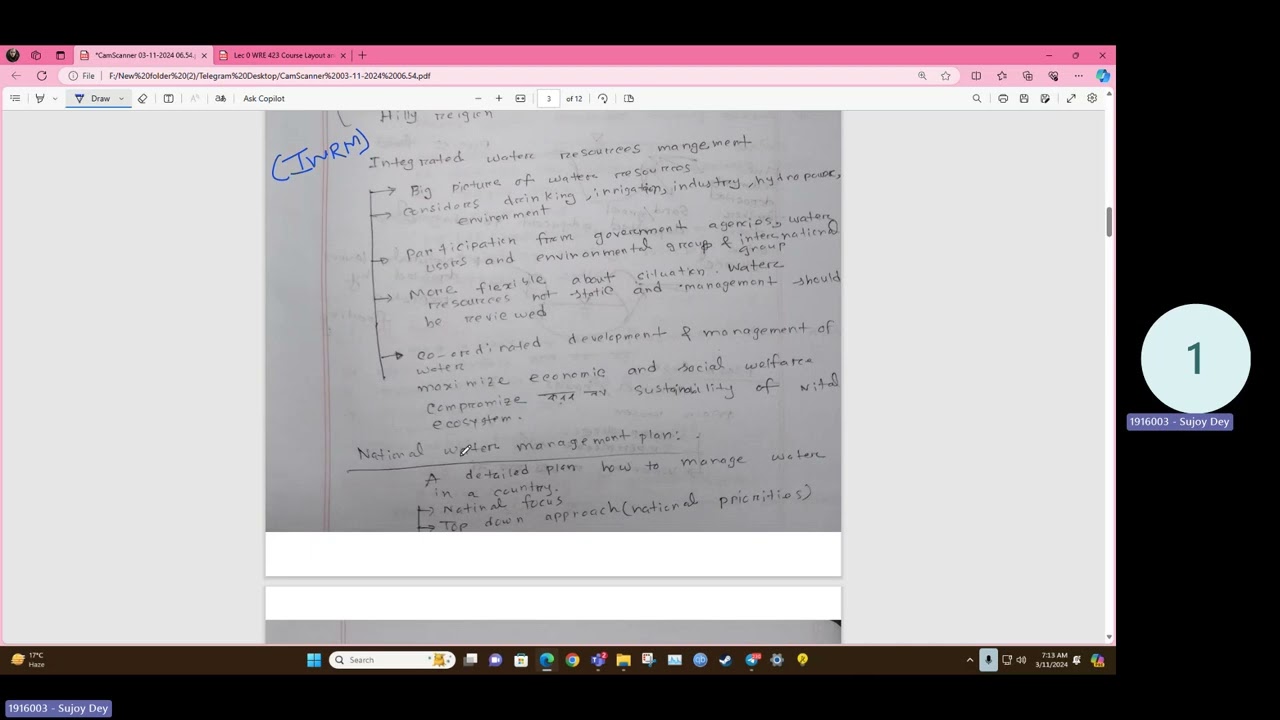 *CamScanner 03-11-2024 06.54.
Lec 0 WRE 423 Course Layout an
File
F:/New%20folder%20(2)/Telegram%20Desktop/CamScanner%2003-11-2024%2006.54.pdf
Draw
Ask Copilot
3 of 12
Hilly Religion
(IWRM)
Integrated water resources mangement
Big picture of water resources
considers drinking, irrigation, industry, hydropower,
environment
Participation from government agencies, water
users and environmental group & international
group
More flexible about situation. Water
resources not static and management should
be reviewed
co-ordinated development & management of
water
maximize economic and social welfare
compromize sustainability of vital
ecosystem.
National water management plan:
A detailed plan how to manage water
in a country.
National focus
Top down approach (national priorities)
1
1916003 - Sujoy Dey
17°C
Haze
Search
7:13 AM
3/11/2024
1916003 - Sujoy Dey